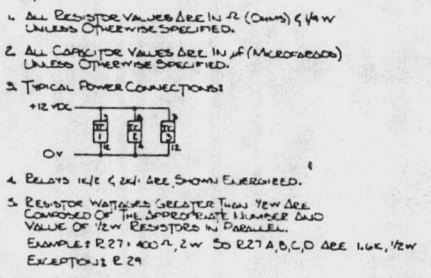 1. ALL RESISTOR VALUES ARE IN Ω (OHMS) & 1/4 W
UNLESS OTHERWISE SPECIFIED.
2. ALL CAPACITOR VALUES ARE IN μf (MICROFARADS)
UNLESS OTHERWISE SPECIFIED.
3. TYPICAL POWER CONNECTIONS:
+12 VDC
IC IC IC
1 2 3
12 12
0V
4. RELAYS 1K/2 & 2K/ ARE SHOWN ENERGIZED.
5. RESISTOR WATTAGES GREATER THAN 1/2W ARE
COMPOSED OF THE APPROPRIATE NUMBER AND
VALUE OF 1/2W RESISTORS IN PARALLEL.
EXAMPLE: R27: 400Ω, 2W SO R27A,B,C,D ARE 1.6K, 1/2W
EXCEPTION: R29